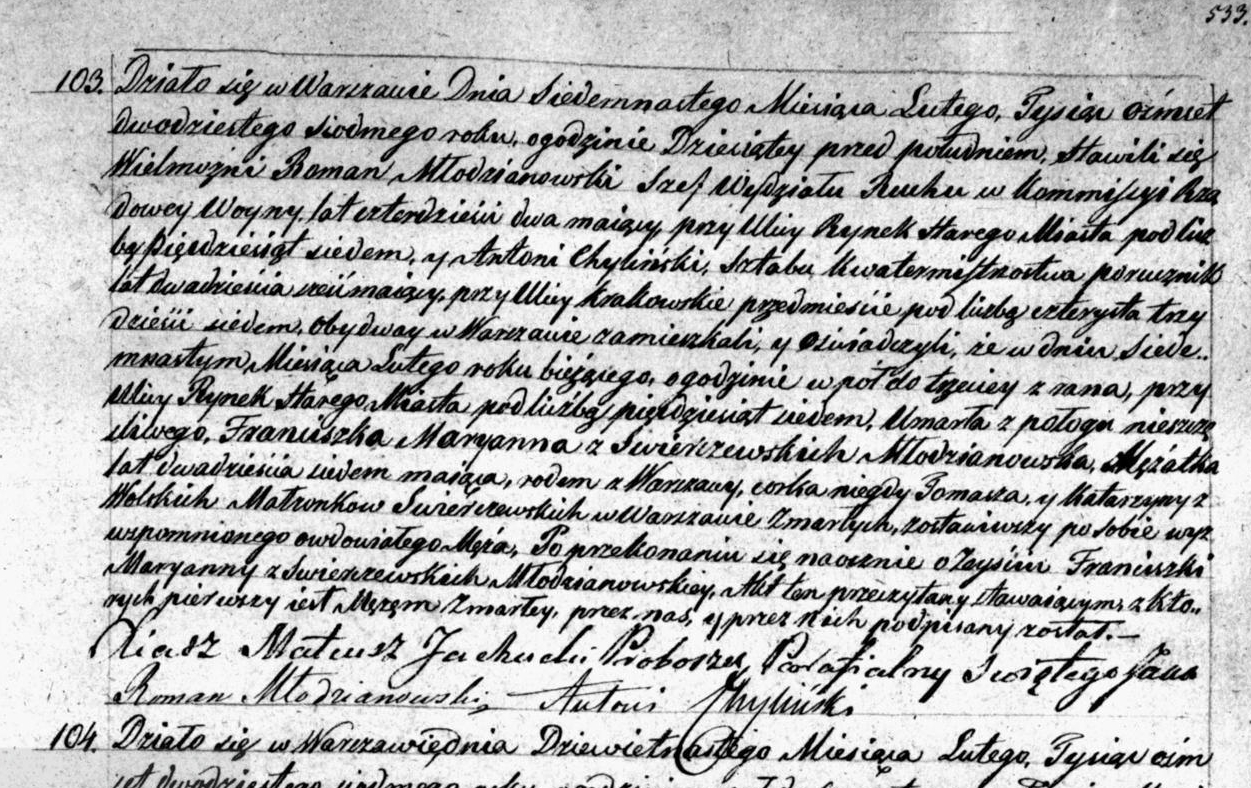 533.
103. Działo się w Warszawie Dnia Siedemnastego Miesiąca Lutego, Tysiąc ośmset
dwudziestego siodmego roku, o godzinie Dziesiątey przed południem, Stawili się
Wielmożni Roman Młodzianowski Szef Wydziału Ruchu w Kommissyi Rzą
dowey Woyny, lat czterdzieści dwa maiący, przy Ulicy Rynek Starego Miasta pod licz
bą Pięćdziesiąt siedem, y Antoni Chyliński, Sztabu Kwatermistrzostwa porucznik
lat dwadzieścia sześć maiący, przy Ulicy Krakowskie przedmieście pod liczbą czterysta trzy
dzieści siedem, obydway w Warszawie zamieszkali, y oświadczyli, że w dniu Siede..
mnastym Miesiąca Lutego roku bieżącego, o godzinie w pół do trzeciey z rana, przy
Ulicy Rynek Starego Miasta pod liczbą pięćdziesiąt siedem, Umarła z połogu nieszczę
śliwego, Franciszka Maryanna z Swierczewskich Młodzianowska, Mężatka
lat dwadzieścia siedem maiąca, rodem z Warszawy, corka niegdy Tomasza, y Katarzyny z
Wolskich Małżonkow Swierczewskich w Warszawie Zmarłych, zostawiwszy po sobie wyż
wzpomnionego owdowiałego Męża, Po przekonaniu się naocznie o Zeyściu Franciszki
Maryanny z Swierczewskich Młodzianowskiey, Akt ten przeczytany stawaiącym, z kto..
rych pierwszy iest Mężem Zmarłey, przez nas, y przez nich podpisany został.—
Xiądz Mateusz Jachucki Proboszcz Parafialny Swiętego Jana
Roman Młodzianowski Antoni Chyliński
104. Działo się w Warszawie dnia Dziewiętnastego Miesiąca Lutego, Tysiąc ośm
set dwudziestego siodmego roku